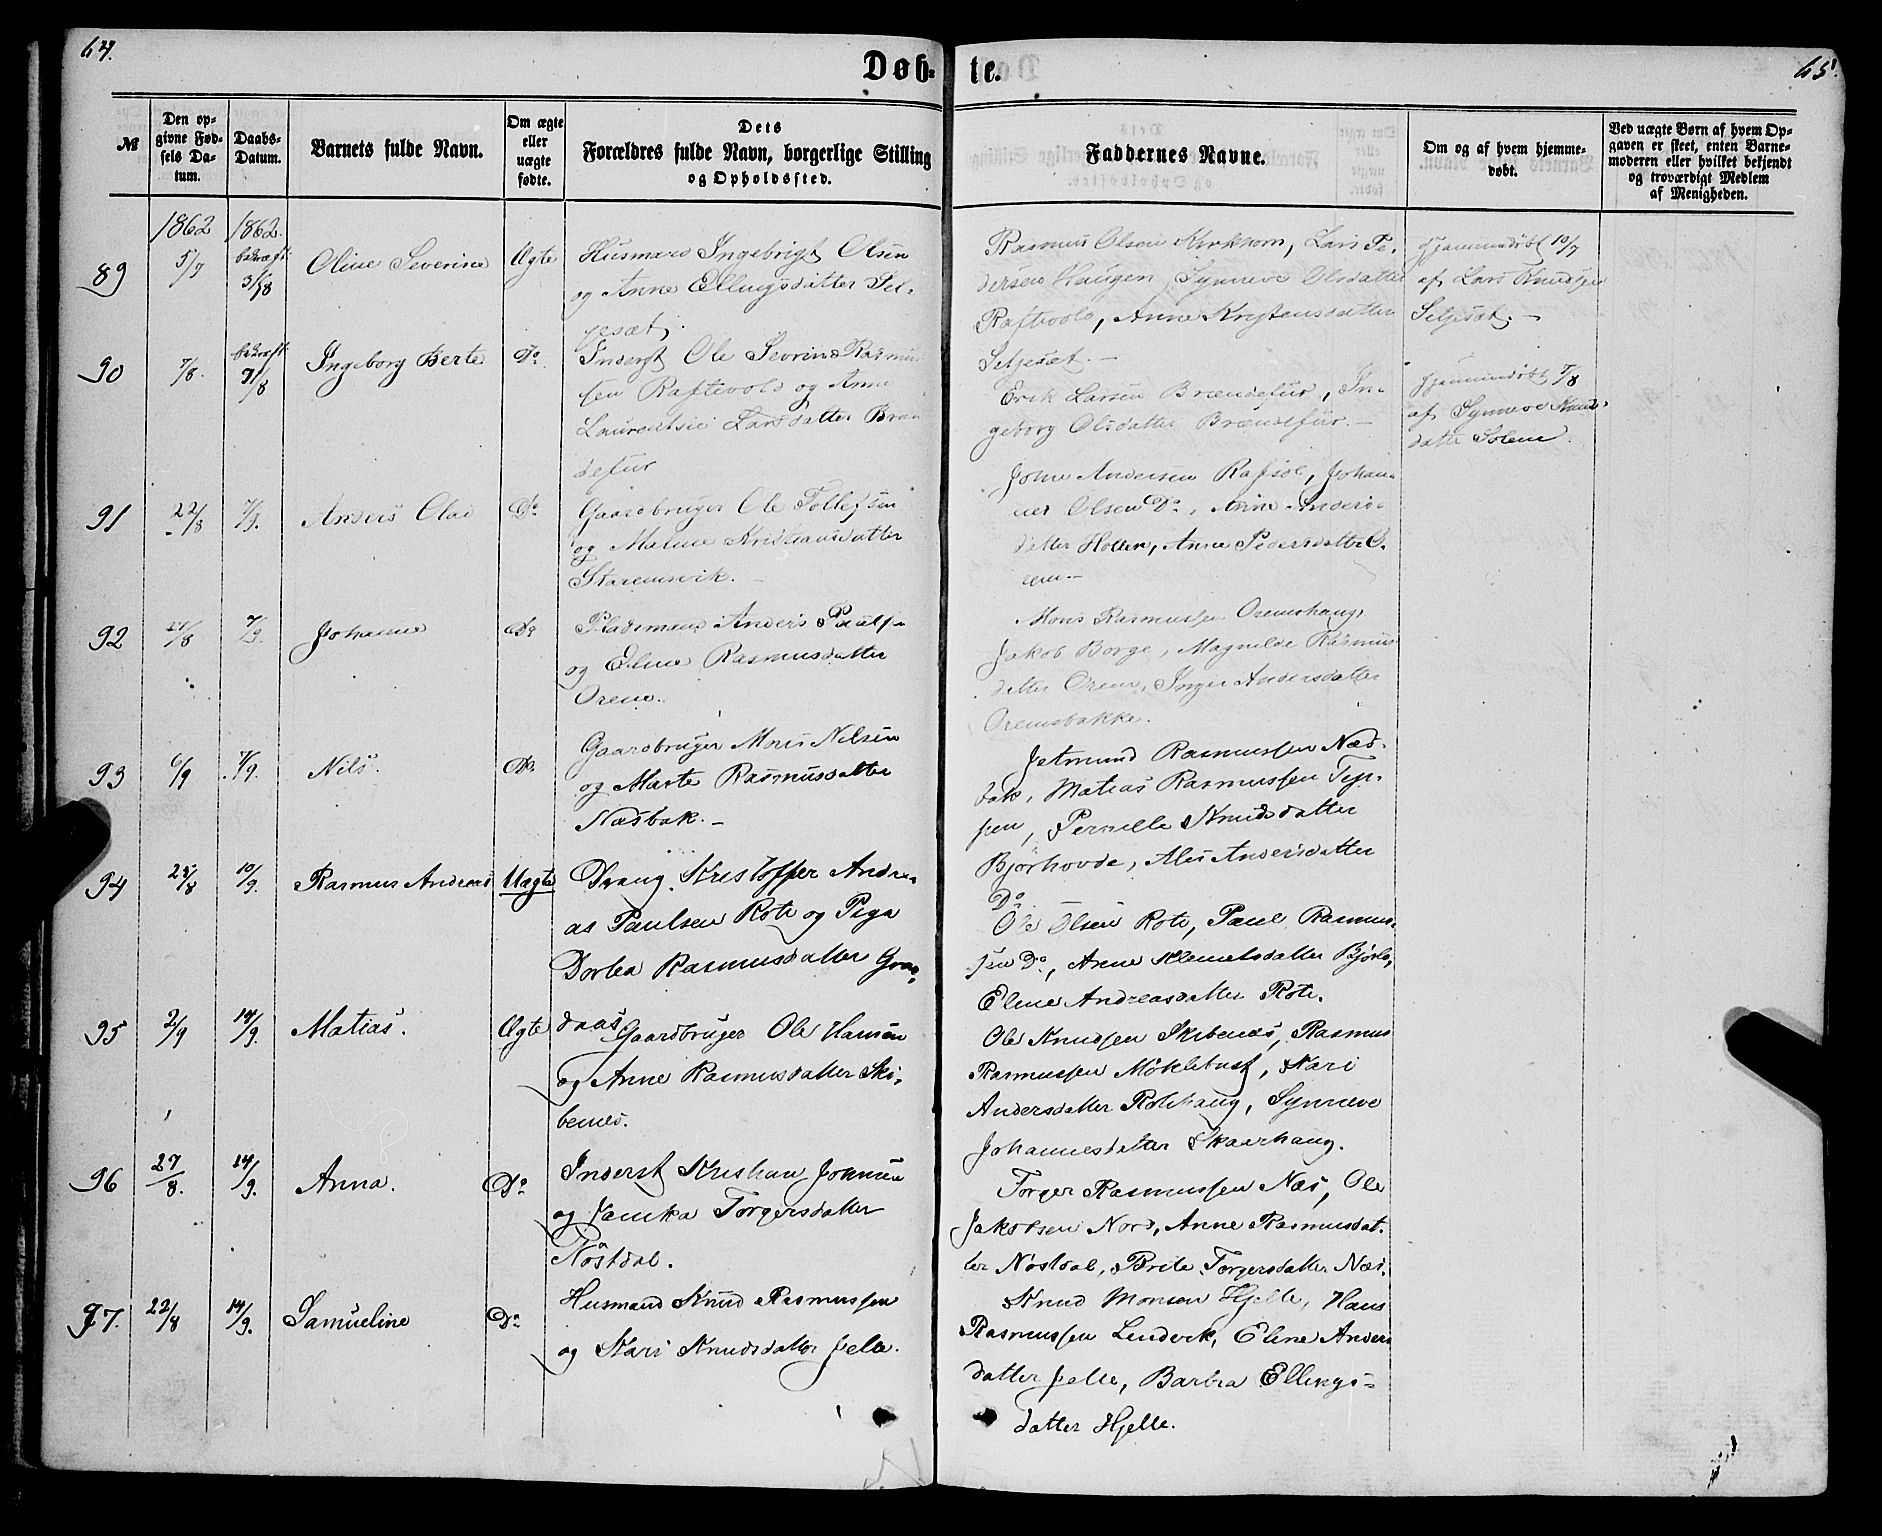 64.
65.
Døb-
te.
№
Den op-
givne Fød-
sels Da-
tum.
Daabs-
Datum.
Barnets fulde Navn.
Om ægte
eller
uægte
fødte.
Dets
Forældres fulde Navn, borgerlige Stilling
og Opholdssted.
Faddernes Navne.
Om og af hvem hjemme-
døbt.
Ved uægte Børn af hvem Op-
gaven er skeet, enten Barne-
moderen eller hvilket bekjendt
og troværdigt Medlem
af Menigheden.
1862
1862.
89
5/7
bekræft.
31/8
Oline Severine
Ægte
Husmand Ingebrigt Olsen
og Anne Ellingsdatter Sel-
jesæt.
Rasmus Olsen Kirkhorn, Lars Pe-
dersen Haugen, Synneve Olsdatter
Raftevold, Anne Kristensdatter
Seljesæt. -
Hjemmedøbt 10/7
af Lars Knudsen
Seljesæt. -
90
7/8.
bekræft.
31/8
Ingeborg Berte
Do
Inderst Ole Sevrin Rasmus-
sen Raftevold og Anne
Laurentsie Larsdatter Bræn-
defur
Erik Larsen Brændefur, In-
geborg Olsdatter Brændefur. -
Hjemmedøbt 7/8
af Synneve Knuds-
datter Solem.
91
22/8
7/9.
Anders Olai
Do
Gaardbruger Ole Tollefsen
og Malene Kristiansdatter
Staremsvik. -
Johannes
Olsen Do, Anne Anders-
datter Hollen, Anne Pedersdatter O-
rem. -
92
7/9.
Johanne
Do
Pladsmand Anders Paulsen
og Eline Rasmusdatter
Orem.
Mons Rasmussen Oremshaug,
Jakob Borge, Magnilde Rasmus
datter Orem, Inger Andersdatter
Oremsbakke.
93
6/9
7/9.
Nils.
Do
Gaardbruger Mons Nilsen
og Marte Rasmusdatter
Næsbak. -
Jetmund Rasmussen Næs-
bak, Matias Rasmussen
Pernille Knudsdatter
Bjørhovde, Ales Andersdatter
Do
94
25/8
10/9.
Rasmus Andreas
Uægte
Dreng. Kristoffer Andre-
as Paulsen Rote og Pige
Dortea Rasmusdatter Graa-
daas
Ole Olsen Rote, Paul Rasmus-
sen Do, Anne Klemetsdatter Bjørlo,
Eline Andreasdatter Rote.
95
2/9
14/9.
Matias.
Ægte
Gaardbruger Ole Hansen
og Anne Rasmusdatter Ski-
benes.
Ole Knudsen Skibenes, Rasmus
Rasmussen Møklebust, Kari
Andersdatter Rotehaug, Synneve
Johannesdatter Skaarhaug.
96
27/8.
14/9.
Anna.
Do
Inderst Kristian Johnsen
og Jamka Torgersdatter
Nøstdal.
Torger Rasmussen Næs, Ole
Jakobsen Nord, Anne Rasmusdat-
ter Nøstdal, Brite Torgersdatter Næs.
97.
22/8
14/9.
Samueline
Do
Husmand Knud Rasmussen
og Kari Knudsdatter Jelle.
Knud Monsen Hjelle, Hans
Rasmussen Lendvik, Eline Anders
datter Jelle, Barbra Ellings-
datter Hjelle.